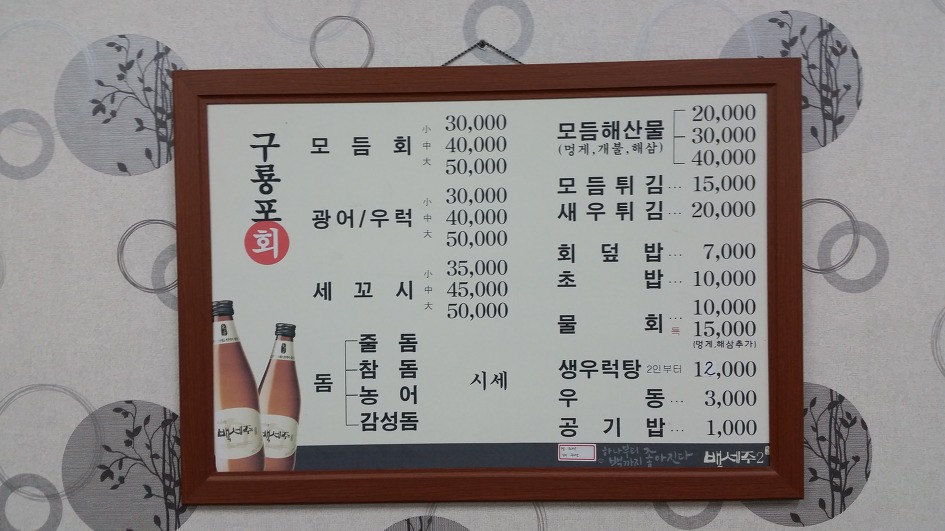 구룡포회
모듬회 小 30,000
中 40,000
大 50,000
광어/우럭 小 30,000
中 40,000
大 50,000
세꼬시 小 35,000
中 45,000
大 50,000
돔
줄돔
참돔
농어
감성돔
시세
모듬해산물 20,000
(멍게,개불,해삼) 30,000
40,000
모듬튀김... 15,000
새우튀김... 20,000
회덮밥... 7,000
초밥... 10,000
물회... 10,000
특 15,000
(멍게,해삼추가)
생우럭탕 2인부터 12,000
우동... 3,000
공기밥... 1,000
백세주
백세주
하나부터
백까지 좋아진다
백세주2